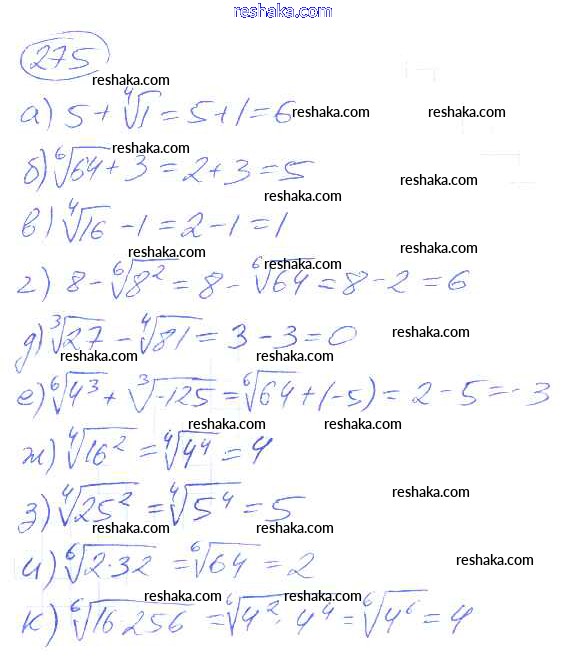 reshaka.com
275
reshaka.com
а) 5 + ⁴√1 = 5 + 1 = 6
reshaka.com
reshaka.com
reshaka.com
б) ⁶√64 + 3 = 2 + 3 = 5
reshaka.com
reshaka.com
в) ⁴√16 - 1 = 2 - 1 = 1
reshaka.com
reshaka.com
reshaka.com
г) 8 - ⁶√8² = 8 - ⁶√64 = 8 - 2 = 6
д) ³√27 - ⁴√81 = 3 - 3 = 0
reshaka.com
reshaka.com
reshaka.com
е) ⁶√4³ + ³√-125 = ⁶√64 + (-5) = 2 - 5 = -3
reshaka.com
reshaka.com
ж) ⁴√16² = ⁴√4⁴ = 4
reshaka.com
reshaka.com
з) ⁴√25² = ⁴√5⁴ = 5
reshaka.com
reshaka.com
reshaka.com
и) ⁶√2·32 = ⁶√64 = 2
reshaka.com
reshaka.com
reshaka.com
к) ⁶√16·256 = ⁶√4²·4⁴ = ⁶√4⁶ = 4
reshaka.com
reshaka.com